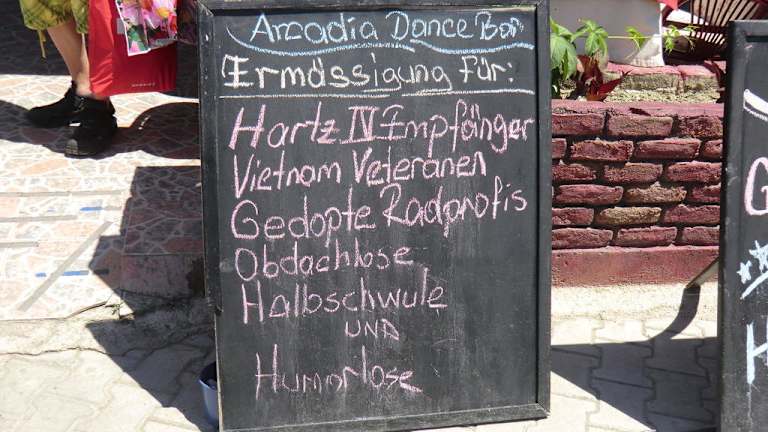 Arcadia Dance Bar
Ermässigung für:
Hartz IV Empfänger
Vietnam Veteranen
Gedopte Radprofis
Obdachlose
Halbschwule
UND
Humorlose